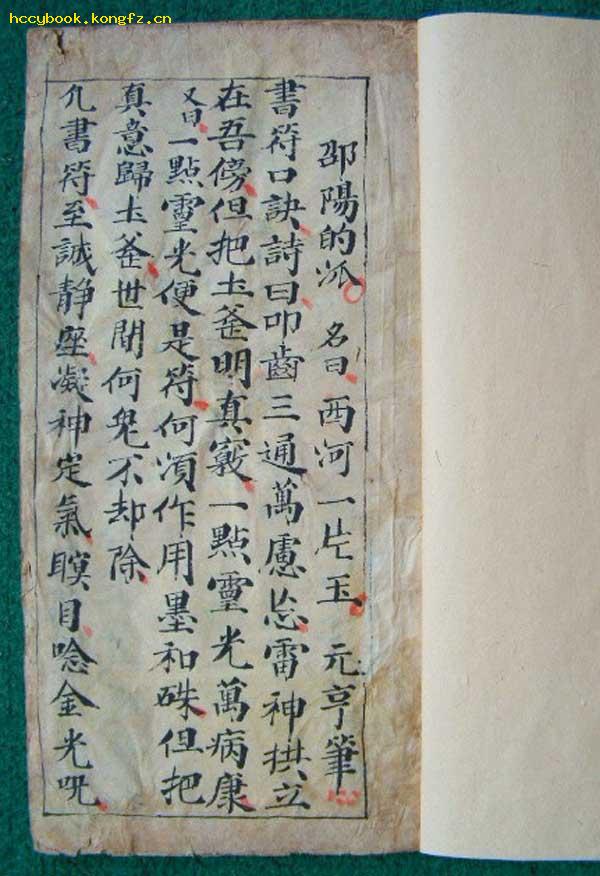 hccybook.kongfz.cn
邵陽的派 名曰西河一片玉 元亨筆
書符口訣詩曰叩齒三通萬慮忘雷神拱立
在吾傍但把土釜明真竅一點靈光萬病康
又曰一點靈光便是符何須作用墨和硃但把
真意歸土釜世間何鬼不却除
凡書符至誠静座凝神定氣瞑目唸金光呪